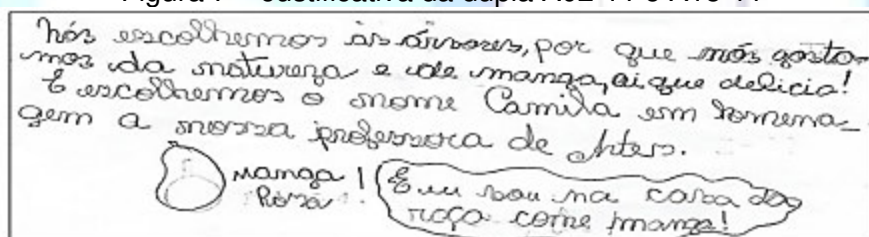 nós escolhemos às árvores, por que nós gosta-
mos da natureza e de manga, ai que delicia!
E escolhemos o nome Camila em homena-
gem a nossa professora de Artes.
manga! E eu vou na casa da
Rosa! roça come manga!